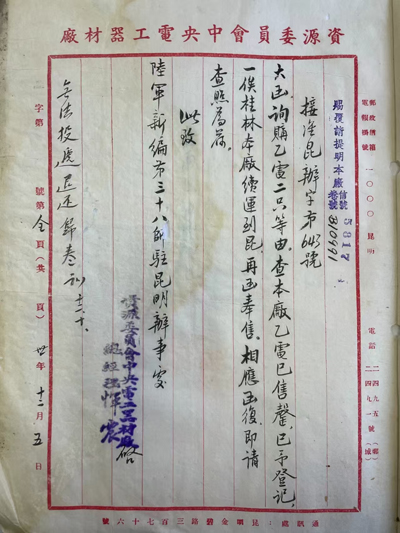 資源委員會中央電工器材廠
郵政信箱 一〇〇〇 昆明
電報掛號
電話
賜覆請提明本廠信號
卷號
5817
310981
接准昆辦字第643號
大函詢購乙電二只等由查本廠乙電已售罄已予登記
一俟桂林本廠續運到昆再函奉售相應函復即請
查照為荷
此致
陸軍新編第三十八師駐昆明辦事處
資源委員會中央電工器材廠 啟
總經理 惲震
無法投處退還歸卷
十二、十、
字第 號第全頁(共 頁) 卅 年 十二 月 五 日
通訊處:昆明金碧路三百七十六號